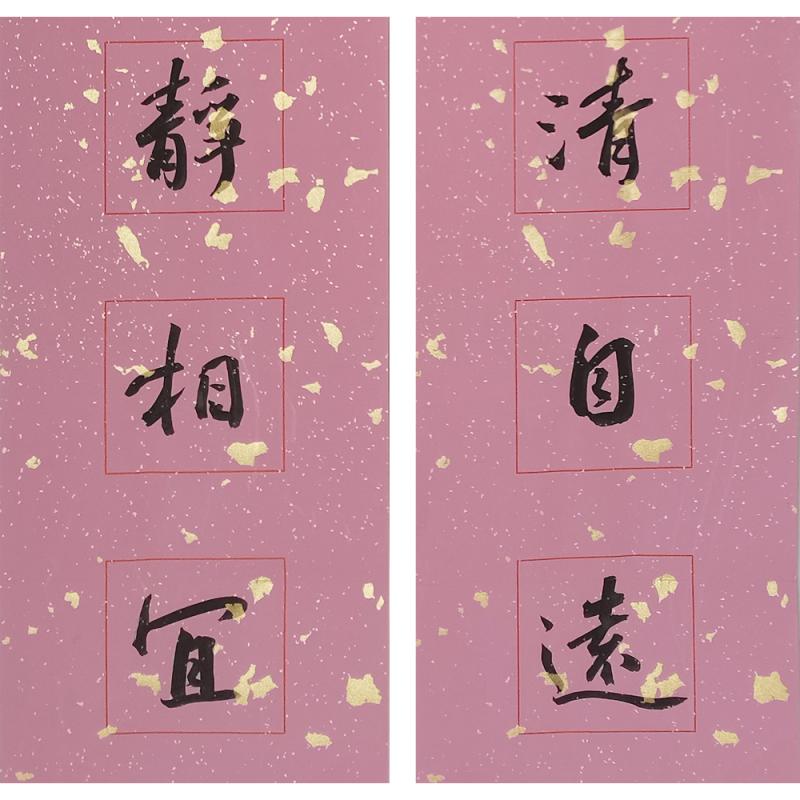 清自遠
靜相宜